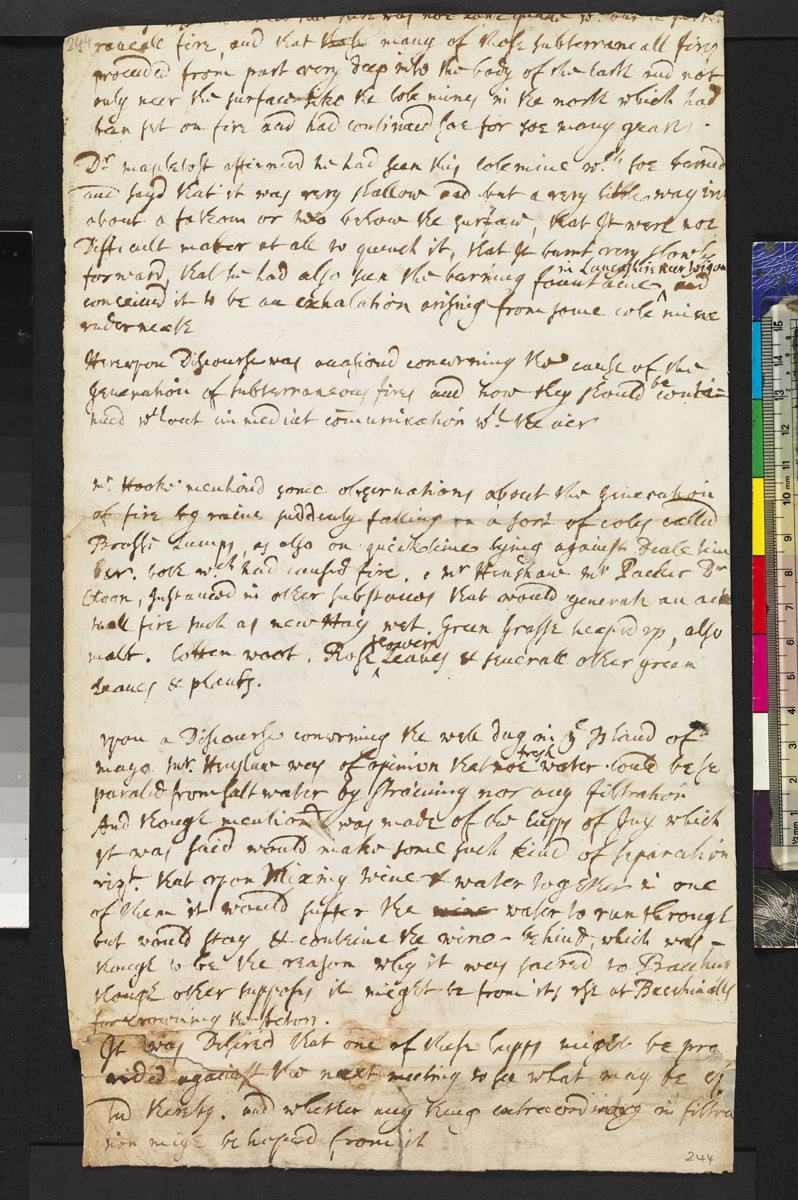 244
fire, and that many of those subterraneall fires
proceeded from part very deep into the body of the earth and not
only neer the surface like the cole mines in the north which had
been set on fire and had continued soe for soe many years.
Dr. mapletoft affirmed he had seen this colemine wch. soe burned
and sayd that it was very shallow and but a very little way in
about a fathom or two below the surfaw, that It were noe
Difficult mater at all to quench it, that It burnt very slowly
forward, that he had also seen the burning fountaine in Lancashire neer wigon and
conceiued it to be an exhalation arising from some cole mine
underneath
Hereupon Discourse was ocationd concerning the cause of the
generation of subterraneous fires and how they should be conti-
nued wthout immediat comunication wt. the aer
mr. Hooke mentiond some obseruations about the generation
of fire by raine suddenly falling on a sort of coles called
Brasse Lumps, as also on quicklime lying against Deale tim
ber. both wch. had caused fire. mr Henshaw mr Packer Dr
Croon, Instanced in other substances that would generate an actu
all fire such as new Hay wet. Green Grasse heaped up, also
malt. Cotten woot. Rose flowers Leaues & seuerall other green
Leaues & plants.
upon a Discourse concerning the well dug in ye Island of
mago mr. Henshaw was of opinion that noe fresh water could be se
parated from salt water by straining nor any filtration
And though mention was made of the cupps of Iuy which
It was said would make some such kind of separation
vizt. that upon Mixing wine & water together in one
of them it would suffer the water to run through
but would stay & conteine the wine behind, which was
though to be the reason why it was sacred to Bacchus
though other supposes it might be from its use at Bacchinalls
for crowning the
It was Desired that one of these cupps might be pro
uided against the next meeting to see what may be ef
ted thereby. and whether any thing extraordinary in filtra
tion might be hoped from it
244